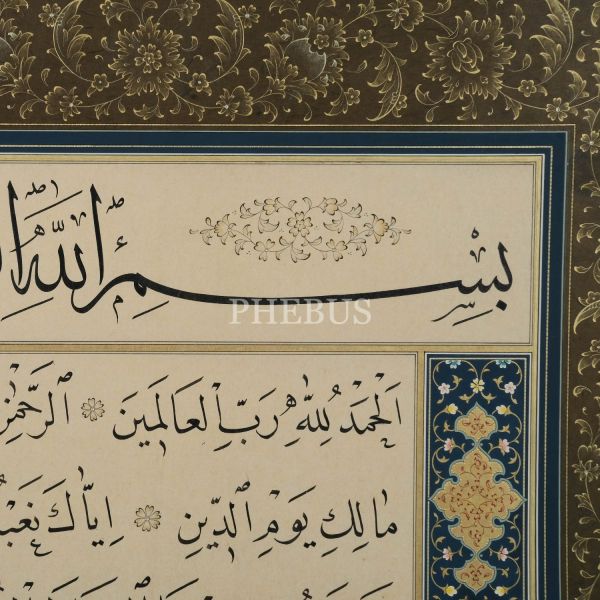 بِسْمِ اللّٰهِ
PHEBUS
اَلْحَمْدُ لِلّٰهِ رَبِّ الْعَالَمِينَ
مَالِكِ يَوْمِ الدِّينِ اِيَّاكَ